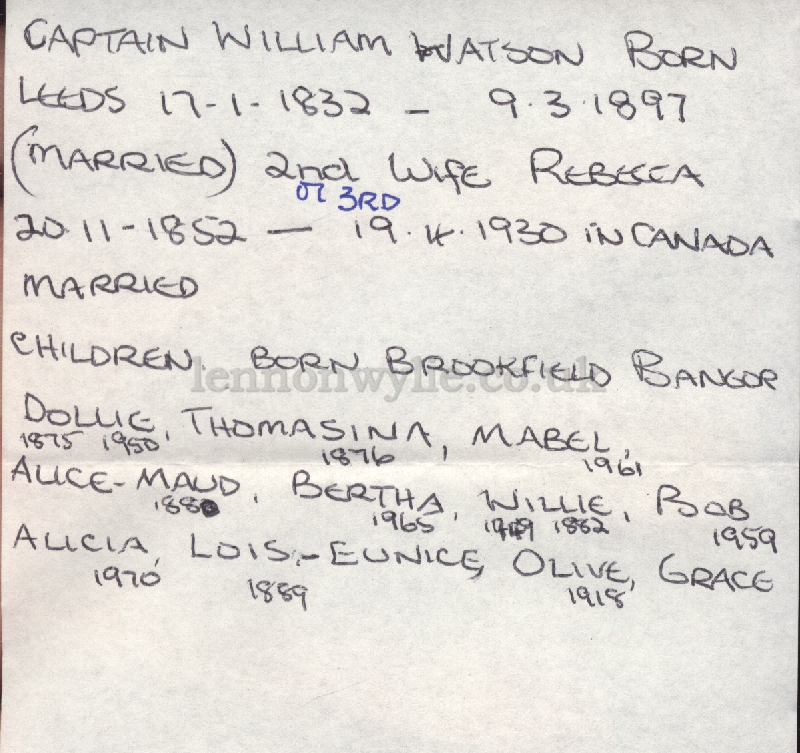 CAPTAIN WILLIAM WATSON BORN
LEEDS 17-1-1832 - 9.3.1897
(MARRIED) 2nd WIFE REBECCA
or 3RD
20.11-1852 — 19.4.1930 IN CANADA
MARRIED
CHILDREN. BORN BROOKFIELD BANGOR
lennonwylie.co.uk
DOLLIE, THOMASINA, MABEL,
1875 1950 1876 1961
ALICE-MAUD, BERTHA, WILLIE, BOB
1880 1965 1882 1959
ALICIA, LOIS,-EUNICE, OLIVE, GRACE
1970 1889 1918